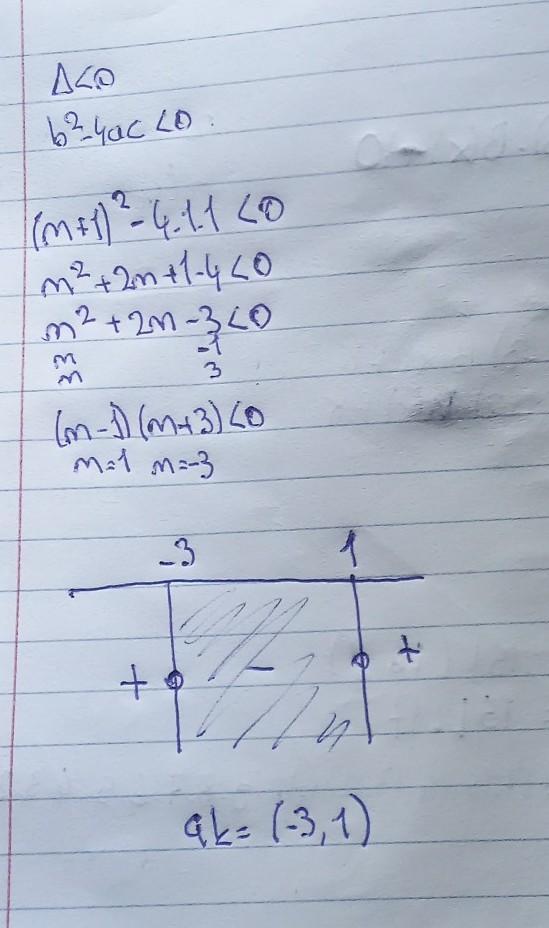 Δ<0
b²-4ac <0
(m+1)² - 4.1.1 <0
m² +2m+1-4<0
m² +2m -3<0
m -1
m 3
(m-1) (m+3)<0
m=1 m=-3
-3 1
+ - +
çk= (-3,1)